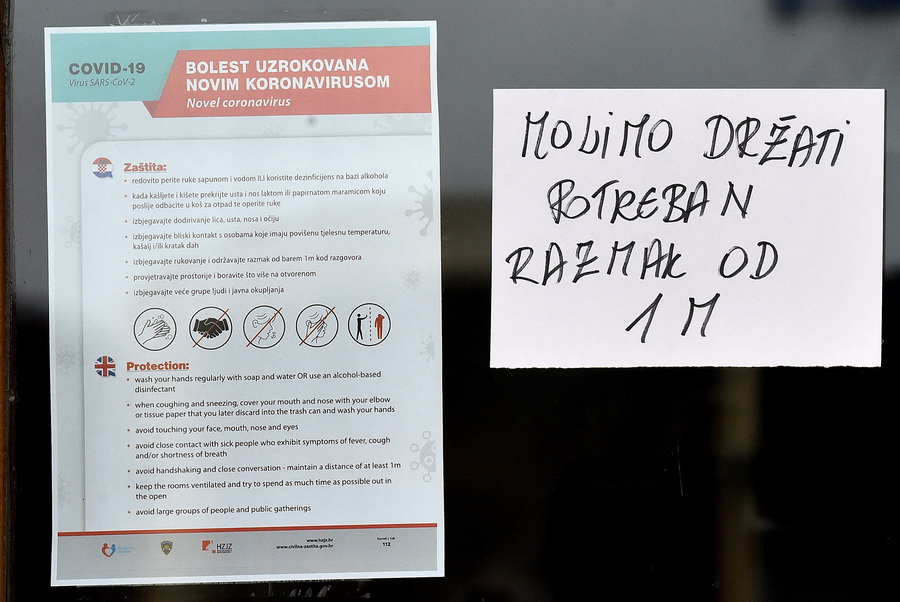 COVID-19
Virus SARS-CoV-2
BOLEST UZROKOVANA
NOVIM KORONAVIRUSOM
Novel coronavirus
Zaštita:
• redovito perite ruke sapunom i vodom ILI koristite dezinficijens na bazi alkohola
• kada kašljete i kišete prekrijte usta i nos laktom ili papirnatom maramicom koju
poslije odbacite u koš za otpad te operite ruke
• izbjegavajte dodirivanje lica, usta, nosa i očiju
• izbjegavajte bliski kontakt s osobama koje imaju povišenu tjelesnu temperaturu,
kašalj i/ili kratak dah
• izbjegavajte rukovanje i održavajte razmak od barem 1m kod razgovora
• provjetravajte prostorije i boravite što više na otvorenom
• izbjegavajte veće grupe ljudi i javna okupljanja
Protection:
• wash your hands regularly with soap and water OR use an alcohol-based
disinfectant
• when coughing and sneezing, cover your mouth and nose with your elbow
or tissue paper that you later discard into the trash can and wash your hands
• avoid touching your face, mouth, nose and eyes
• avoid close contact with sick people who exhibit symptoms of fever, cough
and/or shortness of breath
• avoid handshaking and close conversation - maintain a distance of at least 1m
• keep the rooms ventilated and try to spend as much time as possible out in
the open
• avoid large groups of people and public gatherings
HZJZ
www.hzjz.hr
www.civilna-zastita.gov.hr
112
MOLIMO DRŽATI
POTREBAN
RAZMAK OD
1 M